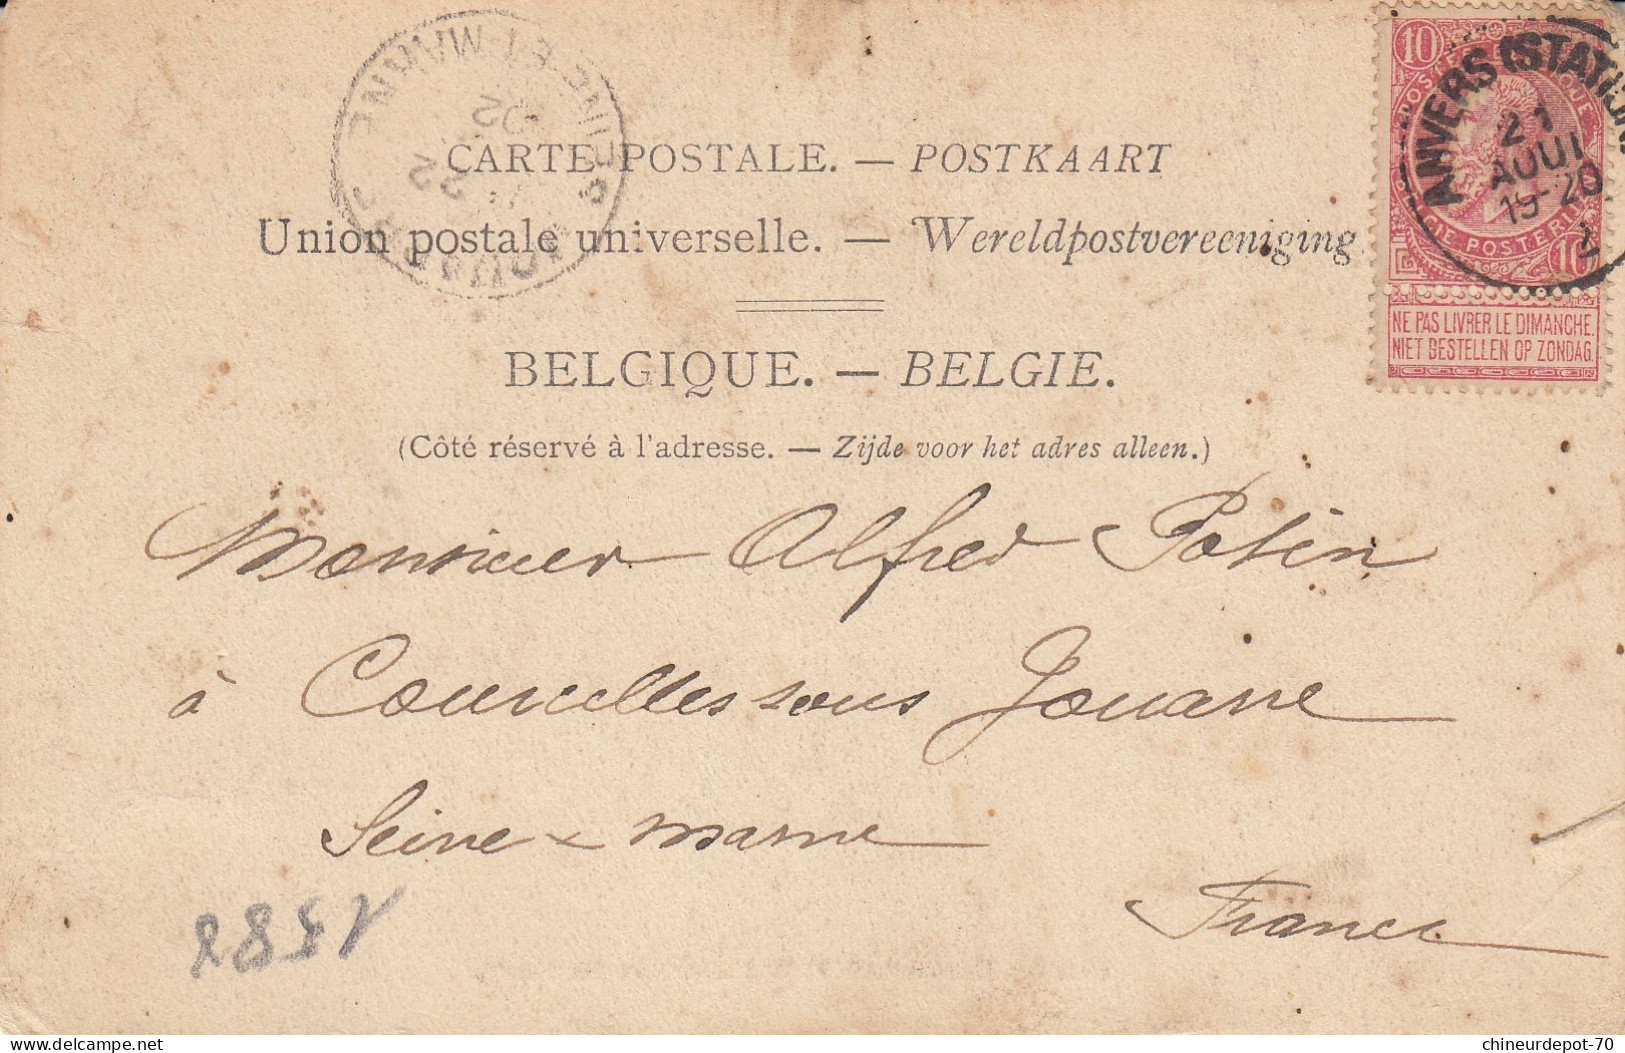 CARTE POSTALE. — POSTKAART
Union postale universelle. — Wereldpostvereeniging
BELGIQUE. — BELGIE.
(Côté réservé à l'adresse. — Zijde voor het adres alleen.)
10 10
BELGIE POSTERIJEN
10
NE PAS LIVRER LE DIMANCHE.
NIET BESTELLEN OP ZONDAG.
ANVERS (STATION
21
AOUT
19-20
SEINE-ET-MARNE
22
02
Monsieur Alfred Potin
à Courcelles sous Jouarre
Seine & Marne
France
chineurdepot-70